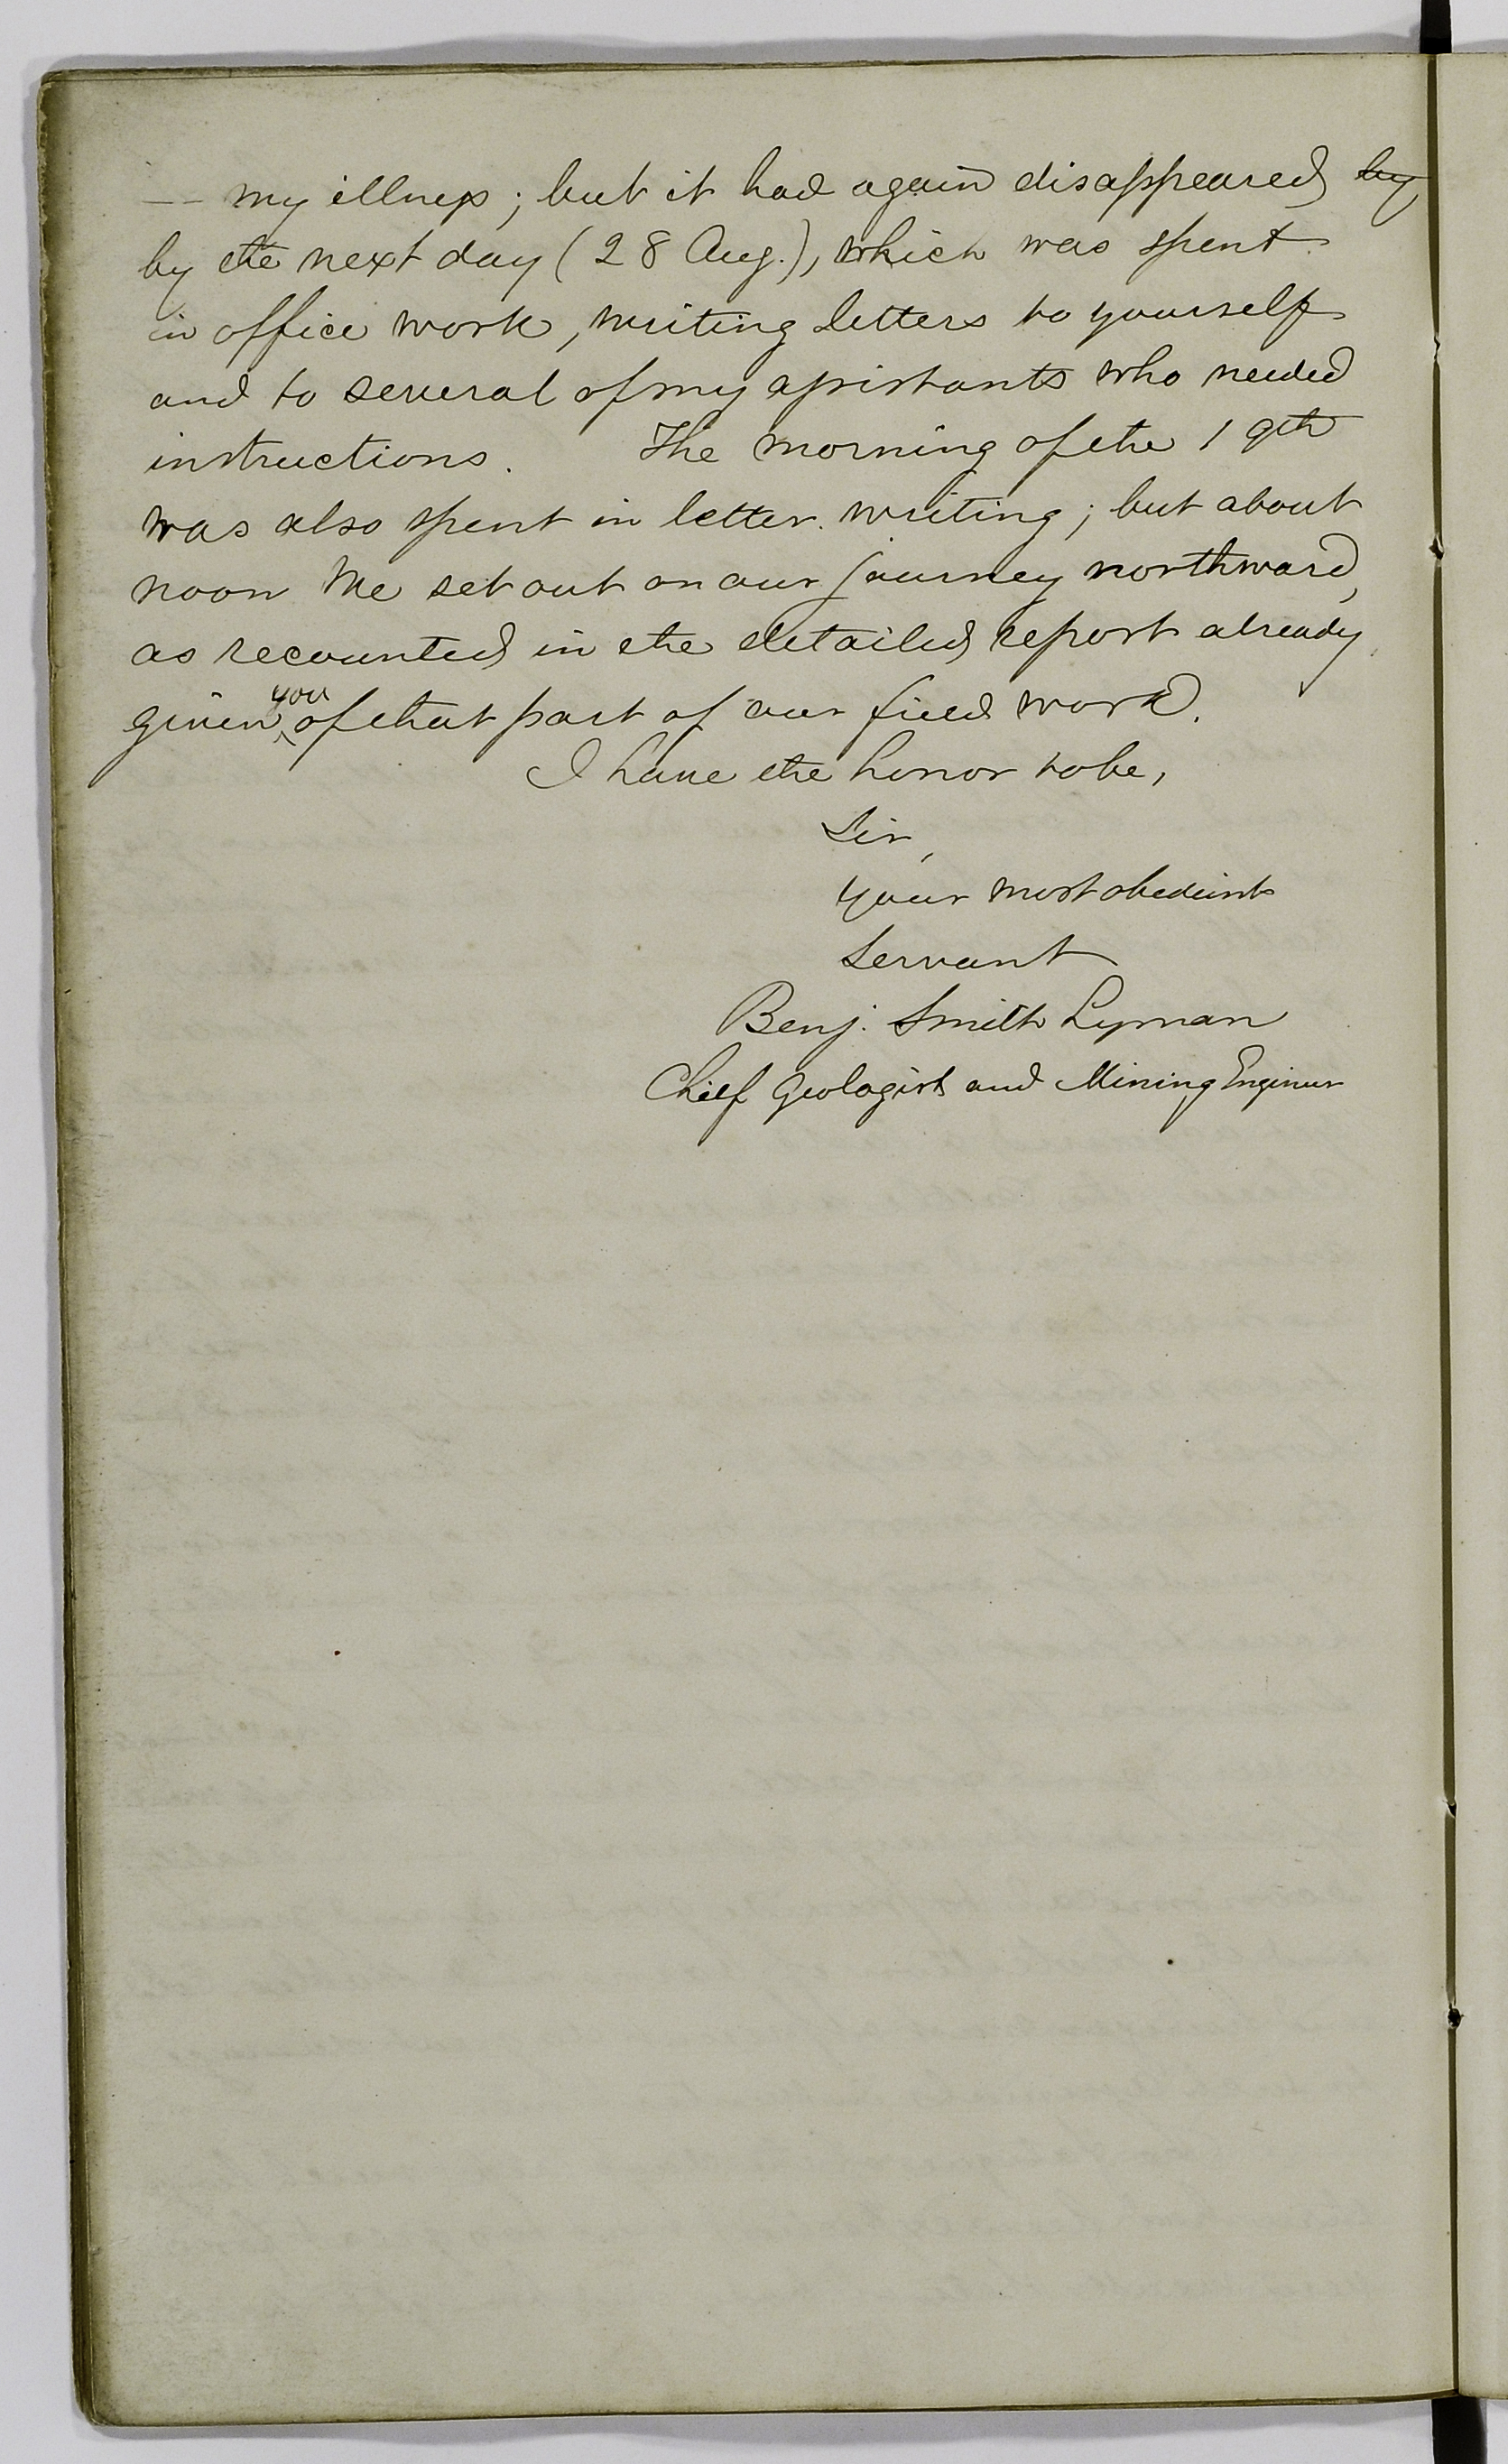 -- my illness; but it had again disappeared by
by the next day (28 Aug.), which was spent
in office work, writing letters to yourself
and to several of my assistants who needed
instructions. The morning of the 19th
was also spent in letter writing; but about
noon we set out on our journey northward,
as recounted in the detailed report already
given you of that part of our field work.
I have the honor to be,
Sir,
your most obedient
servant
Benj. Smith Lyman
Chief Geologist and Mining Engineer